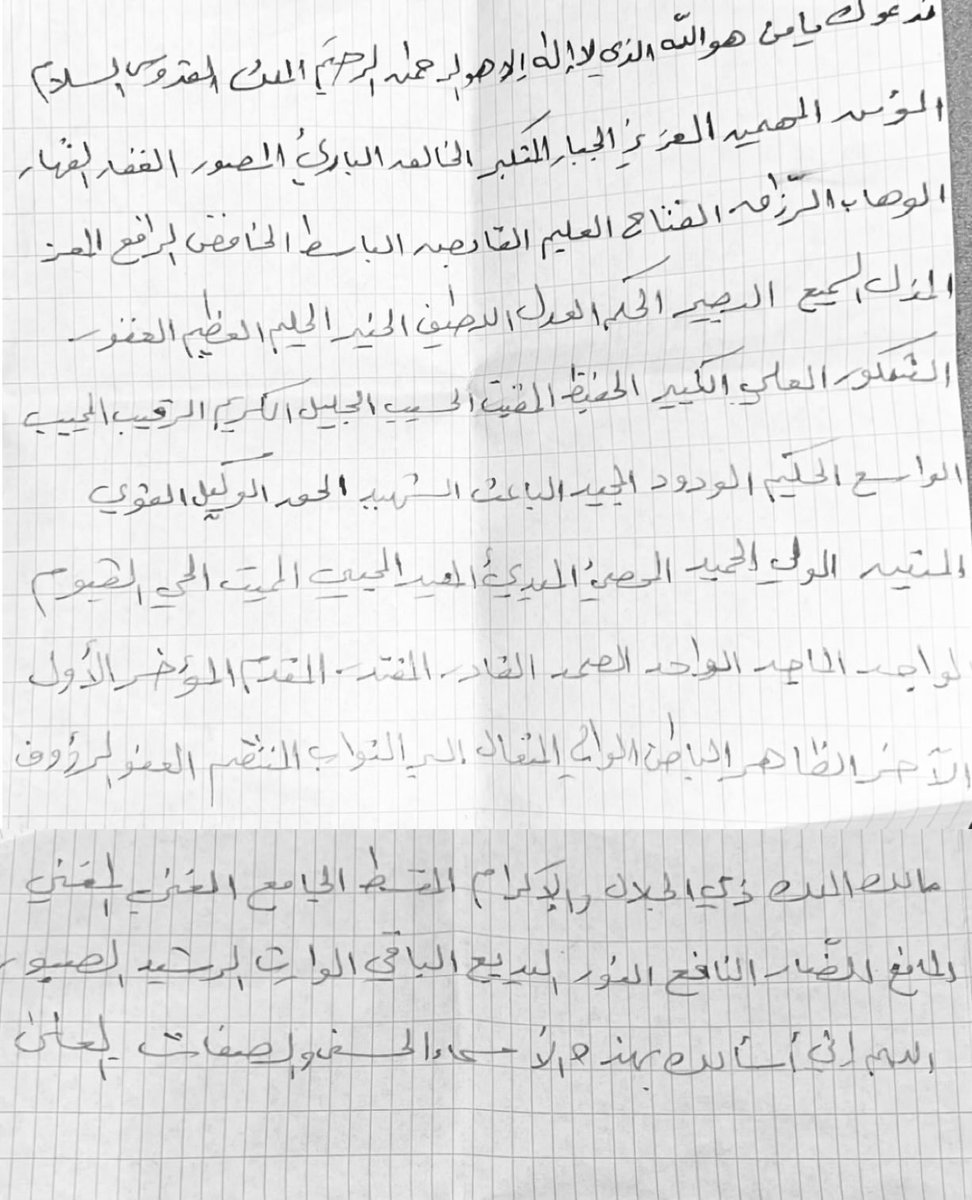 ندعوك يا من هو الله الذي لا إله إلا هو الرحمن الرحيم الملك القدوس السلام
المؤمن المهيمن العزيز الجبار المتكبر الخالق البارئ المصور الغفار القهار
الوهاب الرزاق الفتاح العليم القابض الباسط الخافض الرافع المعز
المذل السميع البصير الحكم العدل اللطيف الخبير الحليم العظيم الغفور
الشكور العلي الكبير الحفيظ المقيت الحسيب الجليل الكريم الرقيب المجيب
الواسع الحكيم الودود المجيد الباعث الشهيد الحق الوكيل القوي
المتين الولي الحميد المحصي المبدئ المعيد المحيي المميت الحي القيوم
الواجد الماجد الواحد الصمد القادر المقتدر المقدم المؤخر الأول
الآخر الظاهر الباطن الوالي المتعال البر التواب المنتقم العفو الرؤوف
مالك الملك ذي الجلال والإكرام المقسط الجامع الغني المغني
المانع الضار النافع النور البديع الباقي الوارث الرشيد الصبور
اللهم إني أسألك بهذه الأسماء الحسنى والصفات العلى